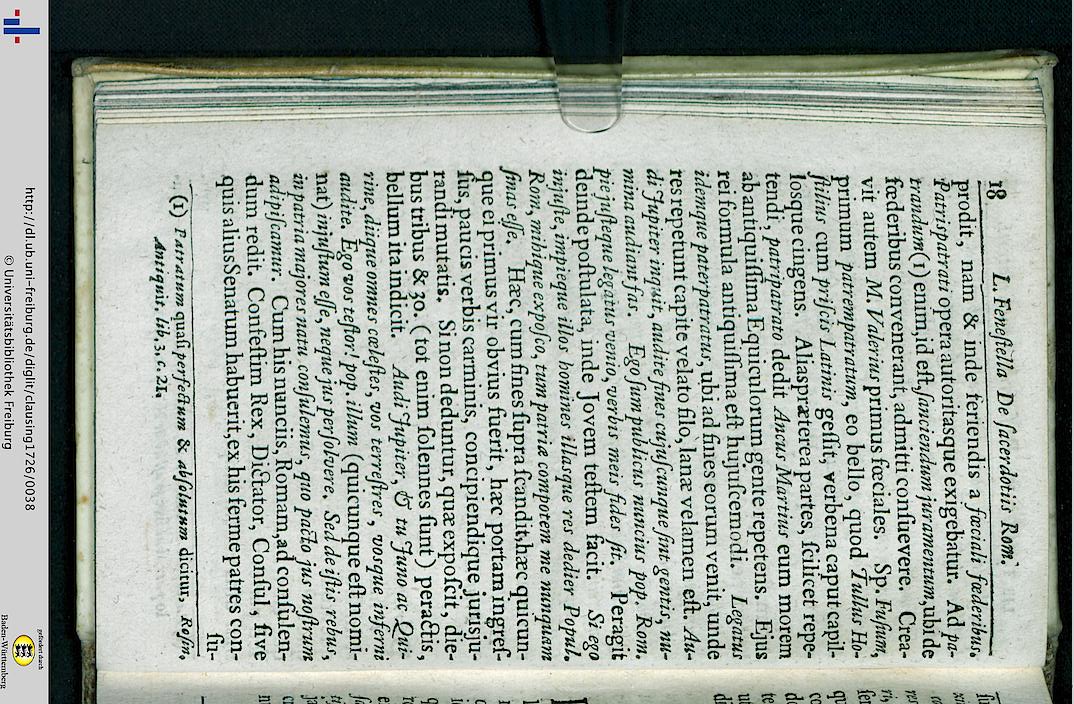 18 L. Feneſtella De ſacerdotiis Rom.
prodit, nam & inde feriendis a fœciali fœderibus.
Patris patrati opera autoritasque exigebatur. Ad pa-
trandum (1) enim, id eſt, ſanciendum juramentum, ubi de
fœderibus convenerant, admitti conſuevere. Crea-
vit autem M. Valerius primus fœciales. Sp. Fuſium,
primum patrem patratum, eo bello, quod Tullus Ho-
ſtilius cum priſcis Latinis geſſit, verbena caput capil-
losque cingens. Alias præterea partes, ſcilicet repe-
tendi, patri patrato dedit Ancus Martius eum morem
ab antiquiſſima Equiculorum gente repetens. Ejus
rei formula antiquiſſima eſt hujuſcemodi. Legatus
idemque pater patratus, ubi ad fines eorum venit, unde
res repetunt capite velato filo, lanæ velamen eſt. Au-
di Jupiter inquit, audite fines cujuſcunque ſint gentis, nu-
mina audiant fas. Ego ſum publicus nuncius pop. Rom.
pie juſteque legatus venio, verbis meis fides ſit. Peragit
deinde poſtulata, inde Jovem teſtem facit. Si ego
injuſte, impieque illos homines illasque res dedier Popul.
Rom, mihique expoſco, tum patriæ compotem me nunquam
ſinas eſſe. Hæc, cum fines ſupra ſcandit, hæc quicun-
que ei primus vir obvius fuerit, hæc portam ingreſ-
ſus, paucis verbis carminis, concipiendique jurisju-
randi mutatis. Si non deduntur, quæ expoſcit, die-
bus tribus & 30. (tot enim ſolennes ſunt) peractis,
bellum ita indicit. Audi Jupiter, & tu Juno ac Qui-
rine, dirque omnes cœleſtes, vos terreſtres, vosque inferni
audite. Ego vos teſtor! pop. illum (quicunque eſt nomi-
nat) injuſtum eſſe, neque jus perſolvere. Sed de iſtis rebus,
in patria majores natu conſulemus, quo pacto jus noſtrum
adipiſcamur. Cum his nuncius, Romam, ad conſulen-
dum redit. Confeſtim Rex, Dictator, Conſul, ſive
quis alius Senatum habuerit, ex his ferme patres con-
ſu-
(1) Patratum quaſi perfectum & abſolutum dicitur, Roſin.
Antiquit. lib. 3. c. 21.
http://dl.ub.uni-freiburg.de/diglit/clausing1726/0038
© Universitätsbibliothek Freiburg
gefördert durch
Baden-Württemberg